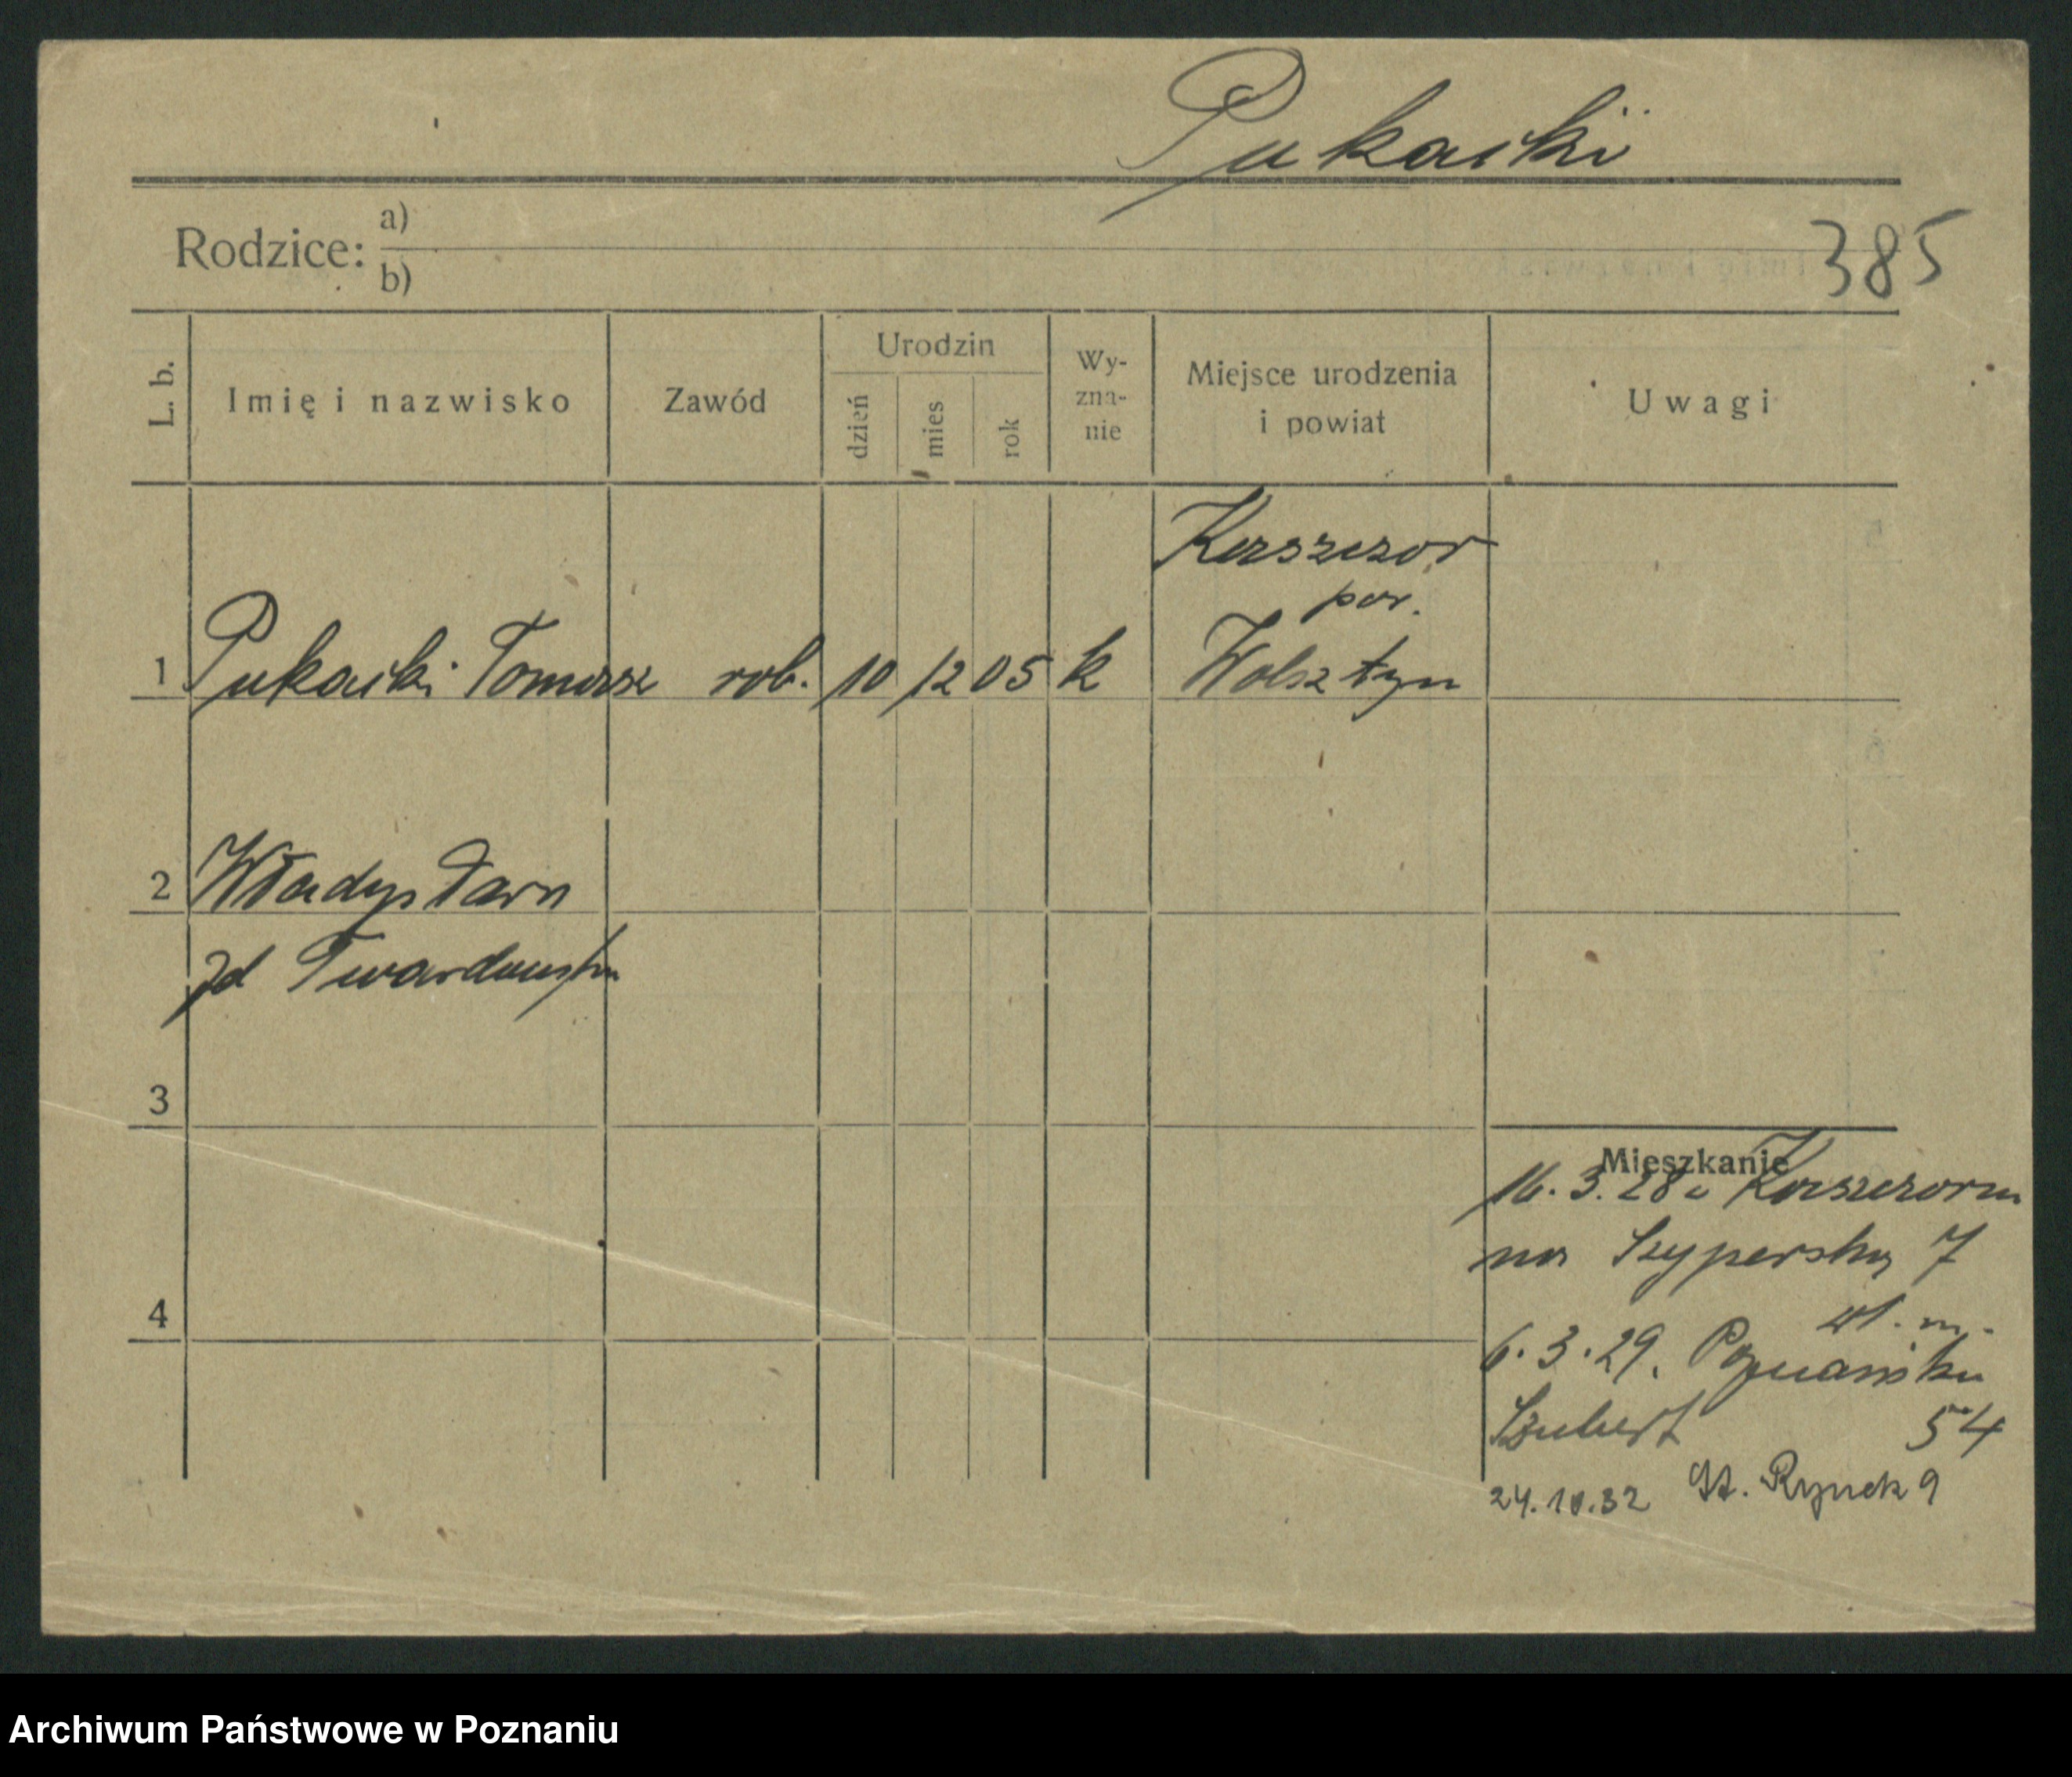 Pukacki
385
Rodzice: a)
b)
L. b.
Imię i nazwisko
Zawód
Urodzin
dzień
mies
rok
Wy-
zna-
nie
Miejsce urodzenia
i powiat
Uwagi
Kaszczor
pow.
1 Pukacki Tomasz rob. 10 12 05 k Wolsztyn
2 Władysława
zd Twardowska
3
4
Mieszkanie
16. 3. 28 z Kaszczoru
na Szyperską 7
wł. m.
6. 3. 29. Poznańska
Szubert 54
24.10.32 St. Rynek 9
Archiwum Państwowe w Poznaniu